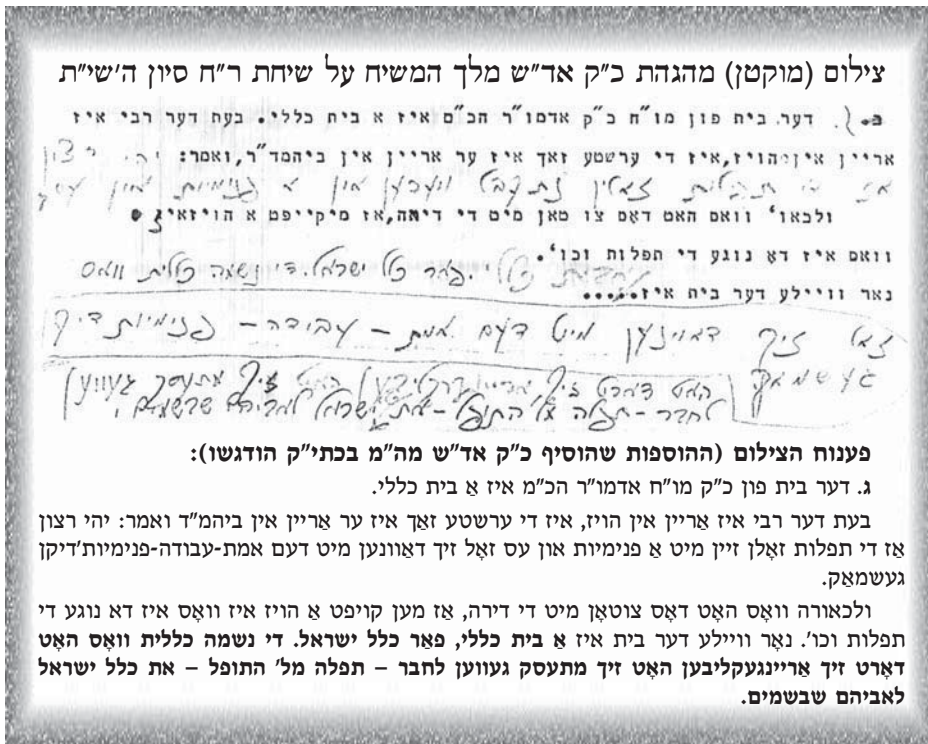 צילום (מוקטן) מהגהת כ"ק אד"ש מלך המשיח על שיחת ר"ח סיון ה'שי"ת
ב. דער בית פון מו"ח כ"ק אדמו"ר הכ"מ איז א בית כללי. בעת דער רבי איז
אריין אין הויז, איז די ערשטע זאך איז ער אריין אין ביהמד"ר, ואמר: יהי רצון
אז די תפלות זאלין נתקבל ווערען אין א פנימיות אין
ולכאו' וואס האט דאס צו טאן מיט די דירה, אז מיקייפט א הויז איז
וואס איז דא נוגע די תפלות וכו'.
נאר וויילע דער בית איז..... בית כללי. פאר כלל ישראל. די נשמה כללית וואס
זאל זיך דאווינען מייט דעם אמת – עבודה – פנימיות דיקן
געשמאק
האט דארט זיך אריינגעקליבען האט זיך מתעסק געווען
לחבר – תפלה מל' התופל – את כלל ישראל לאביהם שבשמים.
פענוח הצילום (ההוספות שהוסיף כ"ק אד"ש מה"מ בכתי"ק הודגשו):
ג. דער בית פון כ"ק מו"ח אדמו"ר הכ"מ איז אַ בית כללי.
בעת דער רבי איז אַריין אין הויז, איז די ערשטע זאַך איז ער אַריין אין ביהמ"ד ואמר: יהי רצון
אַז די תפלות זאָלן זיין מיט אַ פנימיות און עס זאָל זיך דאַוונען מיט דעם אמת-עבודה-פנימיות'דיקן
געשמאַק.
ולכאורה וואָס האָט דאָס צוטאָן מיט די דירה, אַז מען קויפט אַ הויז איז וואָס איז דא נוגע די
תפלות וכו'. נאָר וויילע דער בית איז אַ בית כללי, פאַר כלל ישראל. די נשמה כללית וואָס האָט
דאָרט זיך אַריינגעקליבען האָט זיך מתעסק געווען לחבר – תפלה מל' התופל – את כלל ישראל
לאביהם שבשמים.